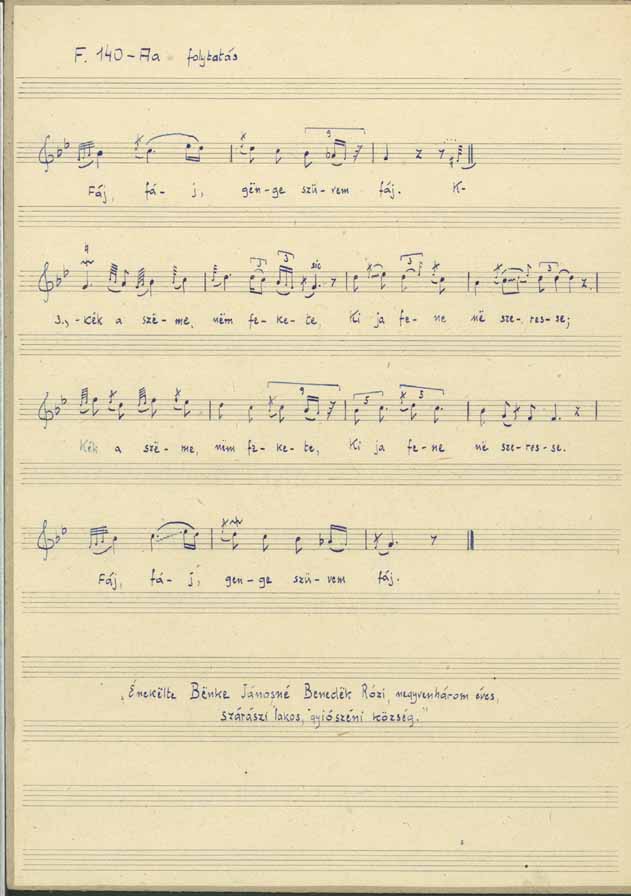 F. 140-Aa folytatás
Fáj, fá-j, gën-ge szü-vem fáj. K-
3.,-Kék a szë-me, nëm fe-ke-te, Ki ja fe-ne në sze-res-se;
Kék a szë-me, nëm fe-ke-te, Ki ja fe-ne në sze-res-se.
Fáj, fá-j, gen-ge szü-vem fáj.
„Énekëlte Bënke Jánosné Benedëk Rózi, negyvenhárom éves,
szárászi lakos, gyiószéni község."